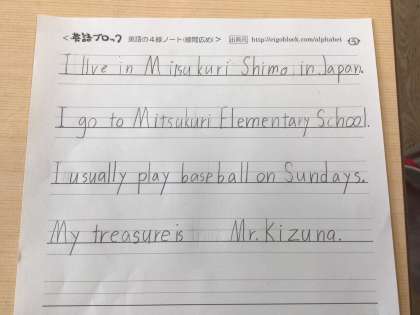 <英語ブロック 英語の4線ノート(線間広め)> 出典元 http://eigoblock.com/alphabet
I live in Mitsukuri Shima in Japan.
I go to Mitsukuri Elementary School.
I usually play baseball on Sundays.
My treasure is Mr. Kizuna.